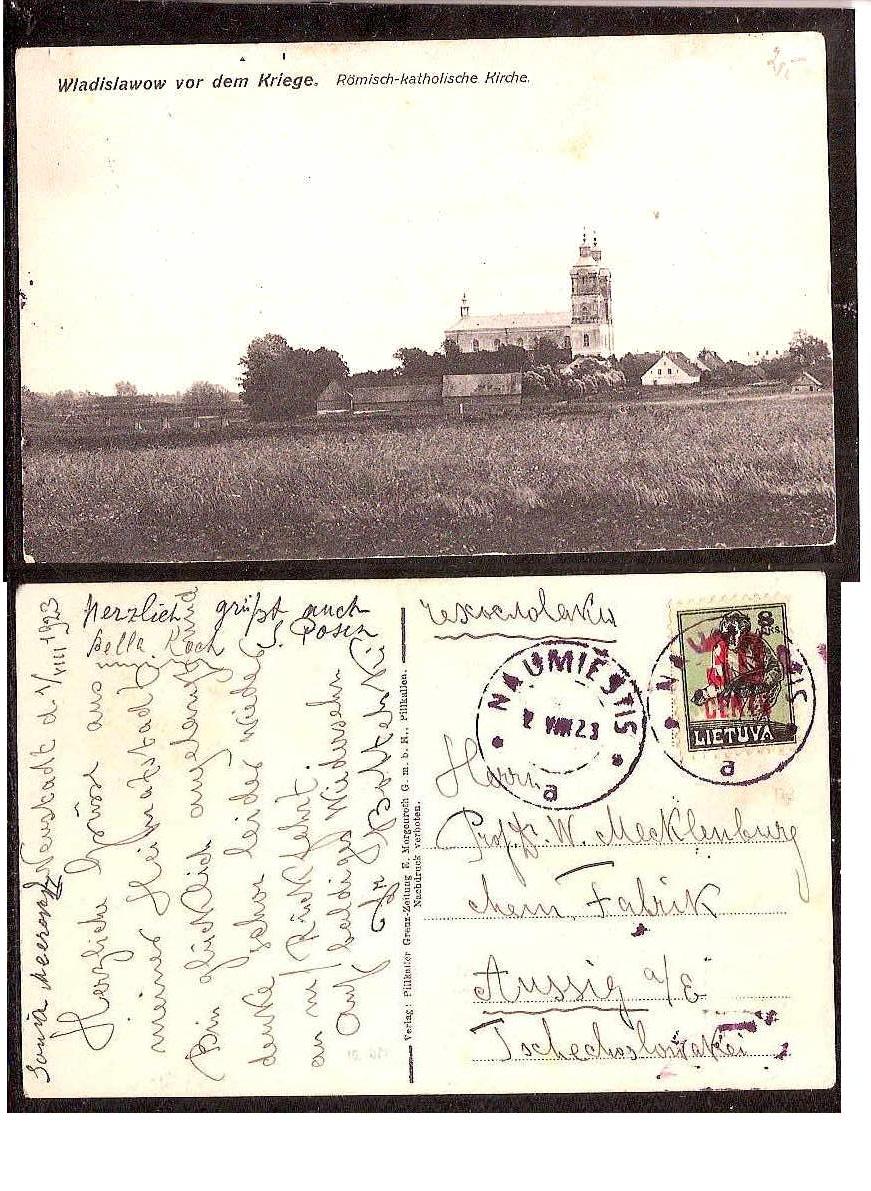 Wladislawow vor dem Kriege. Römisch-katholische Kirche.
2,-
Neustadt d 1/VIII 1923
Herzliche Grüsse aus
meiner Heimatstadt
Bin glücklich angelangt und
denke schon leider wieder
an m/ Rückfahrt.
Auf baldiges Wiedersehn
Herzlich grüßt auch
Bella Koch S. Posen
Sonia
Verlag: Pillkaller Grenz-Zeitung E. Morgenroth G. m. b. H., Pillkallen.
Nachdruck verboten.
Чехословакия
NAUMIESTIS
2 VIII 23
a
8
CENT
LIETUVA
a
Herrn
Prof. Dr. W. Mecklenburg
chem. Fabrik
Aussig a/E
Tschechoslowakei